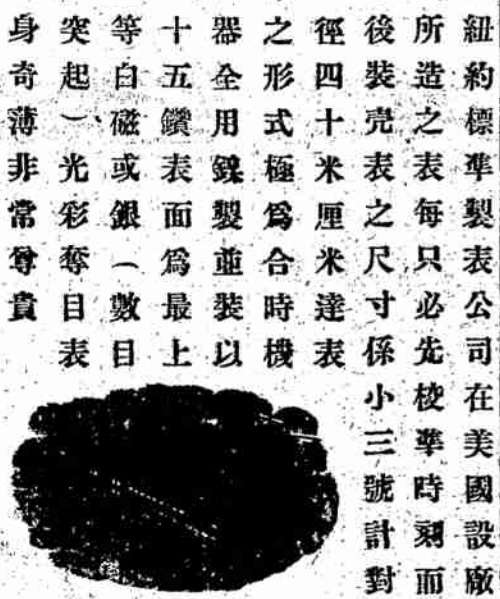 紐約標準製表公司在美國設廠
所造之表每只必先校準時刻而
後裝壳表之尺寸係小三號計對
徑四十米厘米達表
之形式極為合時機
器全用鎳製並裝以
十五鑽表面為最上
等白磁或銀（數目
突起）光彩奪目表
身奇薄非常尊貴